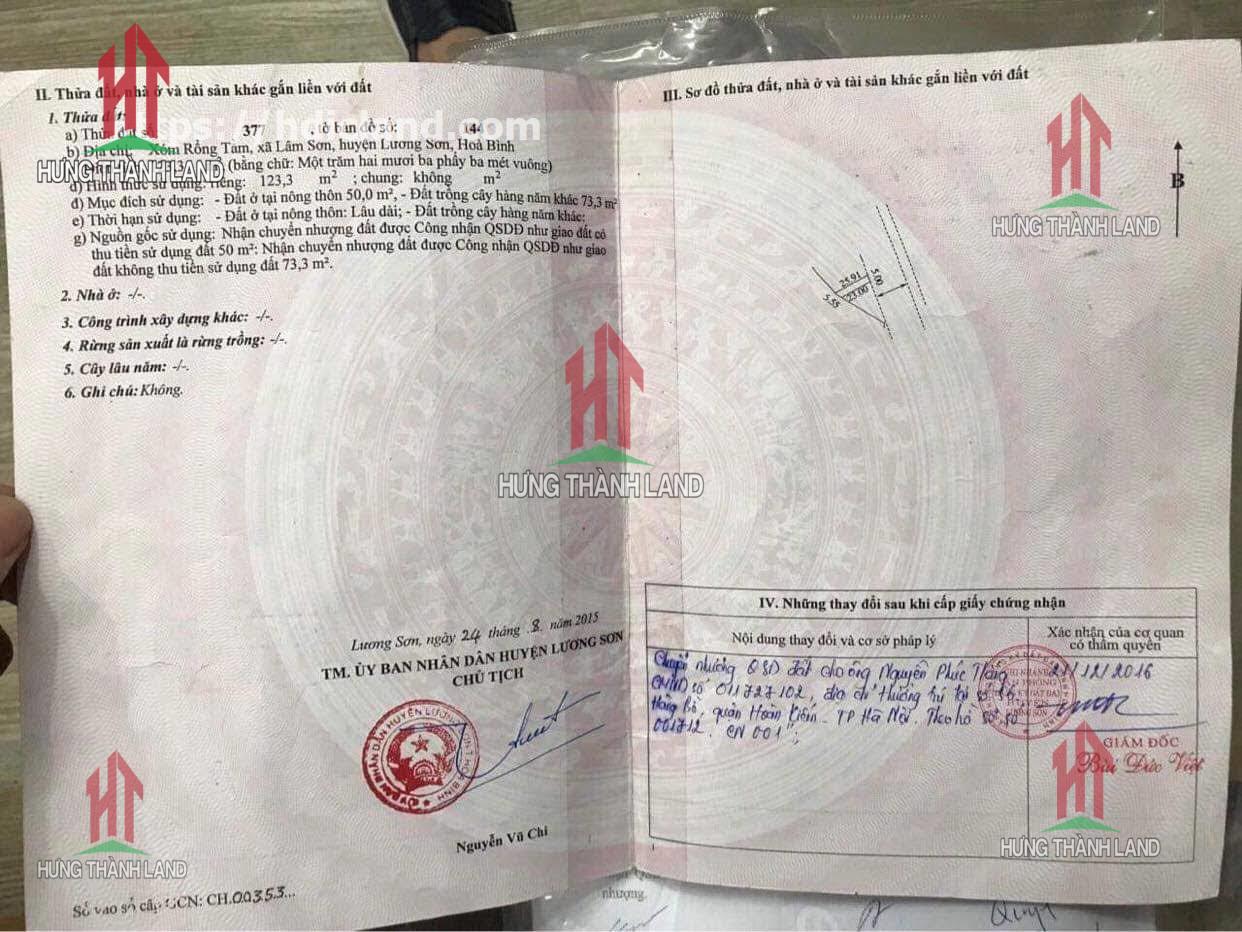 II. Thửa đất, nhà ở và tài sản khác gắn liền với đất
1. Thửa đất:
a) Thửa đất số: 377, tờ bản đồ số: 144
b) Địa chỉ: Xóm Rổng Tằm, xã Lâm Sơn, huyện Lương Sơn, Hoà Bình
(bằng chữ: Một trăm hai mươi ba phẩy ba mét vuông)
d) Hình thức sử dụng: riêng: 123,3 m² ; chung: không m²
đ) Mục đích sử dụng: - Đất ở tại nông thôn 50,0 m², - Đất trồng cây hàng năm khác 73,3 m²
e) Thời hạn sử dụng: - Đất ở tại nông thôn: Lâu dài; - Đất trồng cây hàng năm khác:
g) Nguồn gốc sử dụng: Nhận chuyển nhượng đất được Công nhận QSDĐ như giao đất có
thu tiền sử dụng đất 50 m²: Nhận chuyển nhượng đất được Công nhận QSDĐ như giao
đất không thu tiền sử dụng đất 73,3 m².
2. Nhà ở: -/-.
3. Công trình xây dựng khác: -/-.
4. Rừng sản xuất là rừng trồng: -/-.
5. Cây lâu năm: -/-.
6. Ghi chú: Không.
Lương Sơn, ngày 24 tháng 8 năm 2015
TM. ỦY BAN NHÂN DÂN HUYỆN LƯƠNG SƠN
CHỦ TỊCH
Nguyễn Vũ Chi
Số vào sổ cấp GCN: CH.00353...
III. Sơ đồ thửa đất, nhà ở và tài sản khác gắn liền với đất
B
25.91
23.00
5.55
5.00
IV. Những thay đổi sau khi cấp giấy chứng nhận
Nội dung thay đổi và cơ sở pháp lý
Xác nhận của cơ quan
có thẩm quyền
Chuyển nhượng QSD đất cho ông Nguyễn Phúc Thắng
CMND số 011727102, địa chỉ thường trú tại số 16
Hàng Bồ, quận Hoàn Kiếm - TP Hà Nội. Theo hồ sơ số
001712. CN 001;
21/12/2016
GIÁM ĐỐC
Bùi Đức Việt
nhượng.
https://hdt land.com
HƯNG THÀNH LAND
HƯNG THÀNH LAND
HƯNG THÀNH LAND
HƯNG THÀNH LAND
HƯNG THÀNH LAND